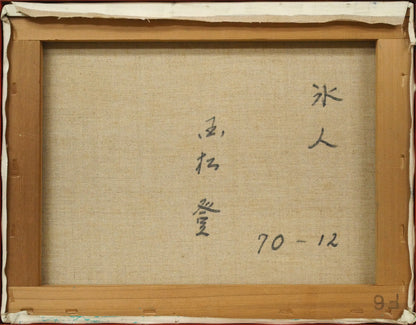 氷人
国松 登
70-12